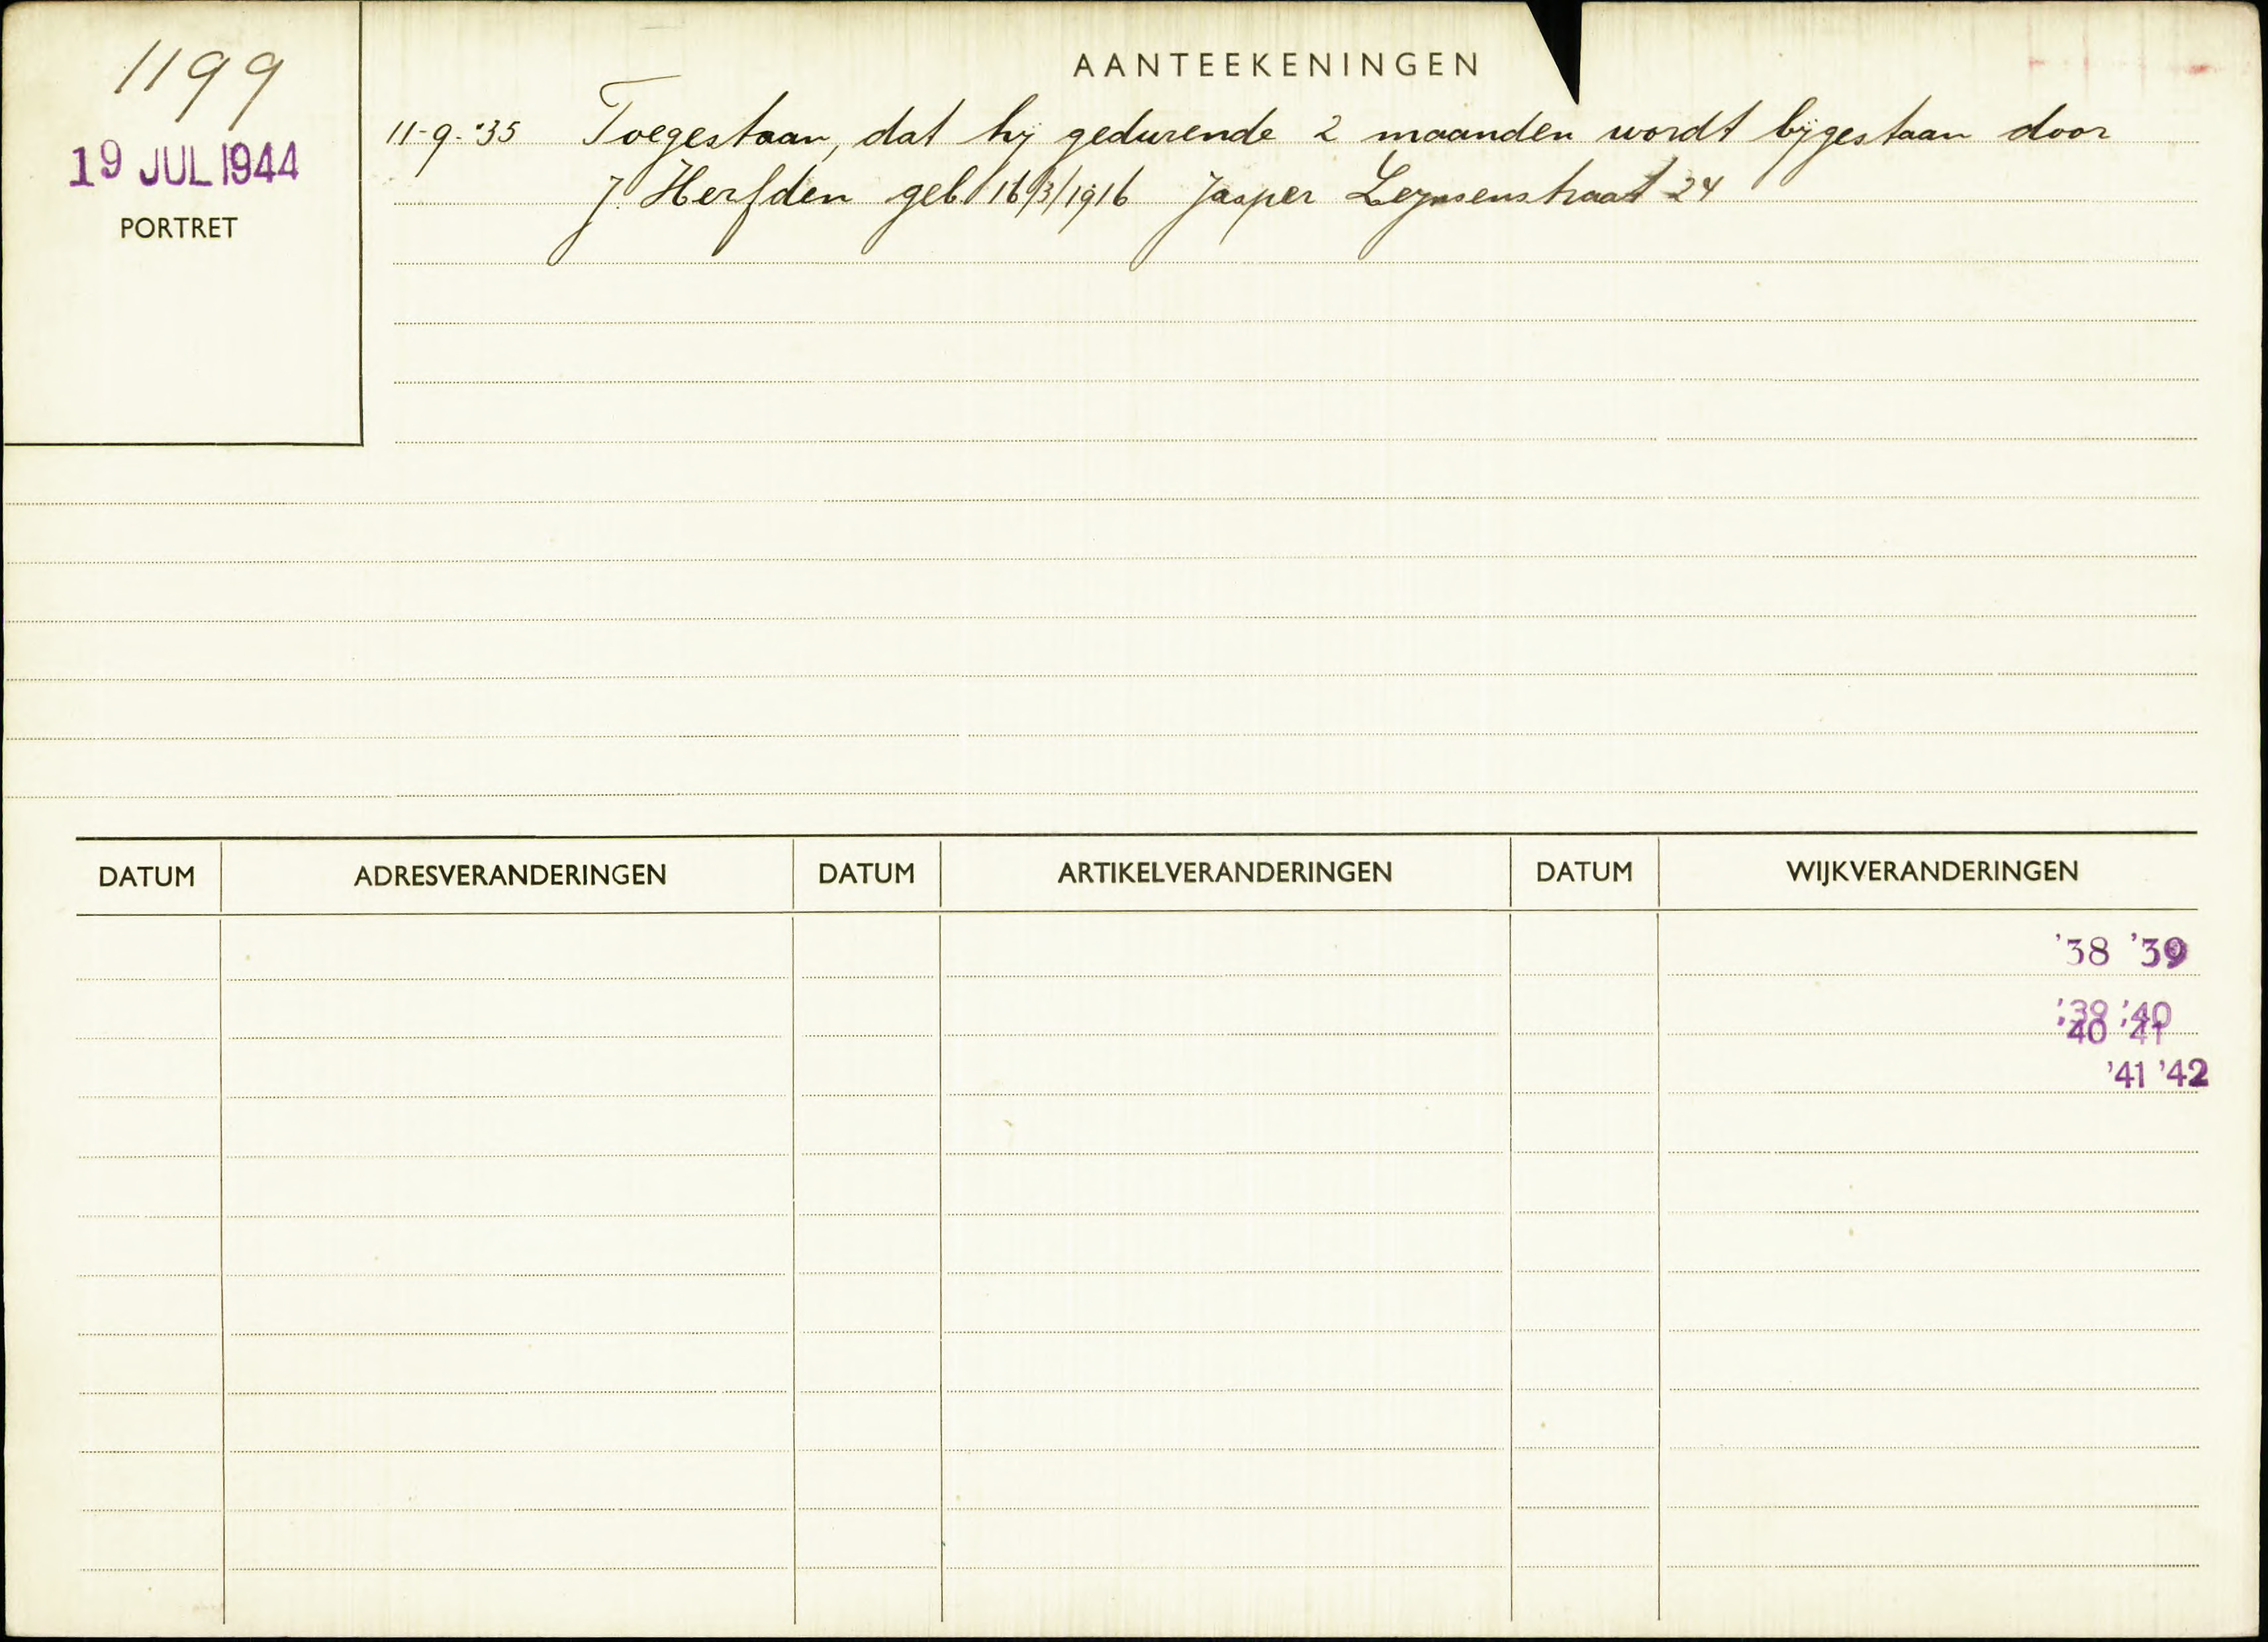 1199
19 JUL 1944
PORTRET
AANTEEKENINGEN
11-9-'35 Toegestaan, dat hij gedurende 2 maanden wordt bijgestaan door
J. Herfden geb. 16/3/1916 Jasper Leynsenstraat 24
DATUM ADRESVERANDERINGEN DATUM ARTIKELVERANDERINGEN DATUM WIJKVERANDERINGEN
'38 '39
'39 '40
'40 '41
'41 '42